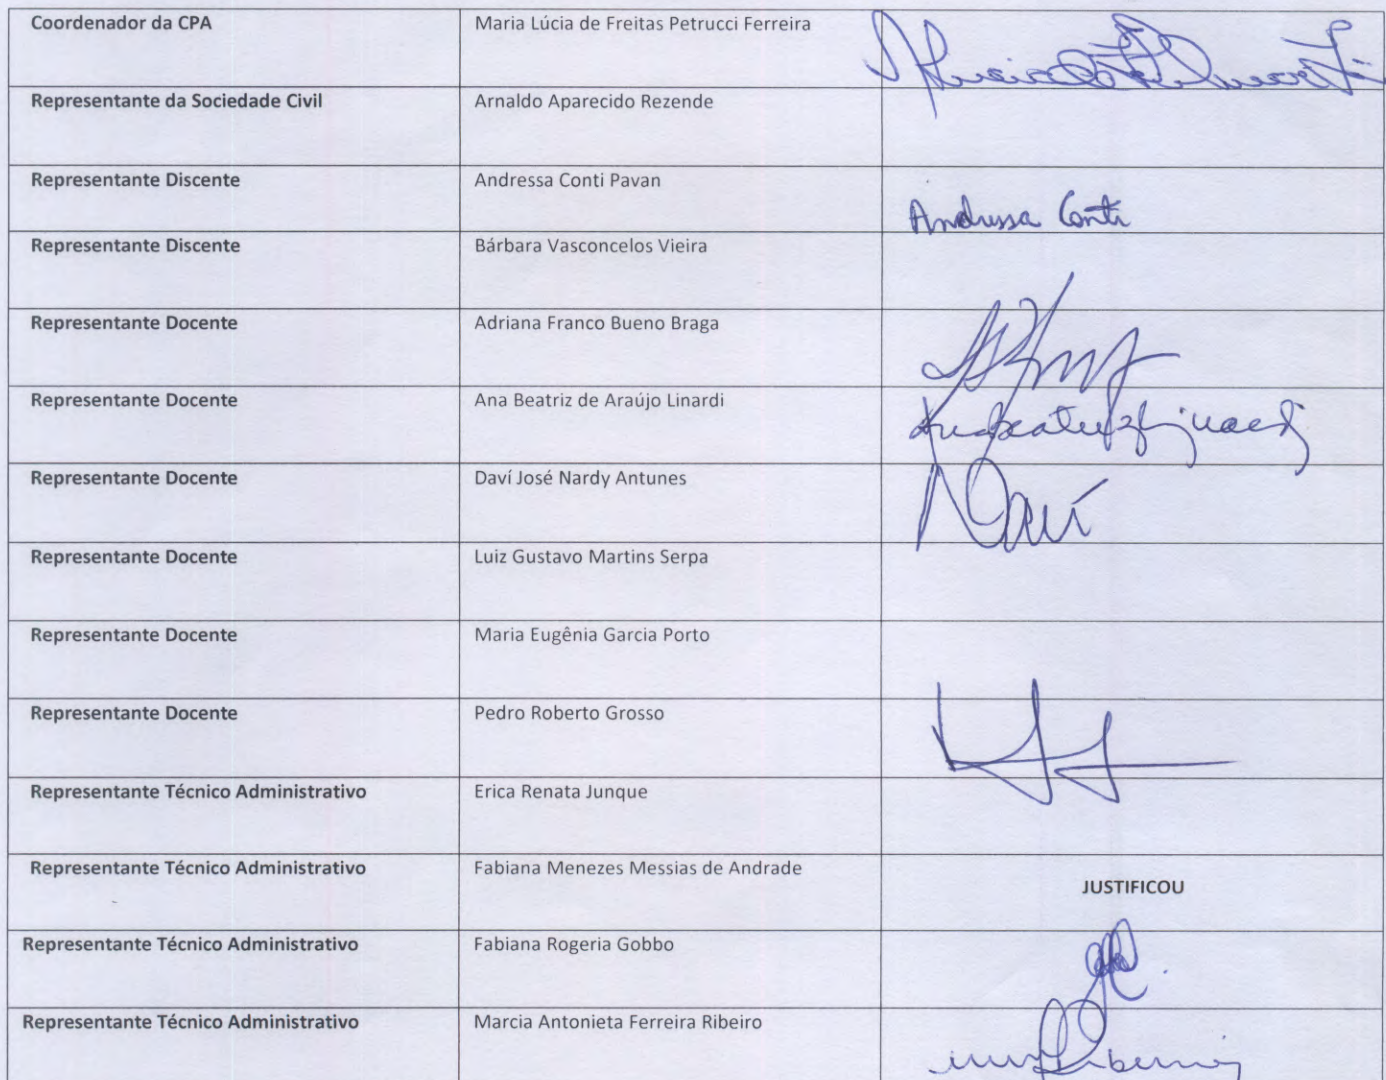 Coordenador da CPA Maria Lúcia de Freitas Petrucci Ferreira
Representante da Sociedade Civil Arnaldo Aparecido Rezende
Representante Discente Andressa Conti Pavan Andressa Conti
Representante Discente Bárbara Vasconcelos Vieira
Representante Docente Adriana Franco Bueno Braga
Representante Docente Ana Beatriz de Araújo Linardi
Representante Docente Daví José Nardy Antunes Daví
Representante Docente Luiz Gustavo Martins Serpa
Representante Docente Maria Eugênia Garcia Porto
Representante Docente Pedro Roberto Grosso
Representante Técnico Administrativo Erica Renata Junque
Representante Técnico Administrativo Fabiana Menezes Messias de Andrade JUSTIFICOU
Representante Técnico Administrativo Fabiana Rogeria Gobbo
Representante Técnico Administrativo Marcia Antonieta Ferreira Ribeiro